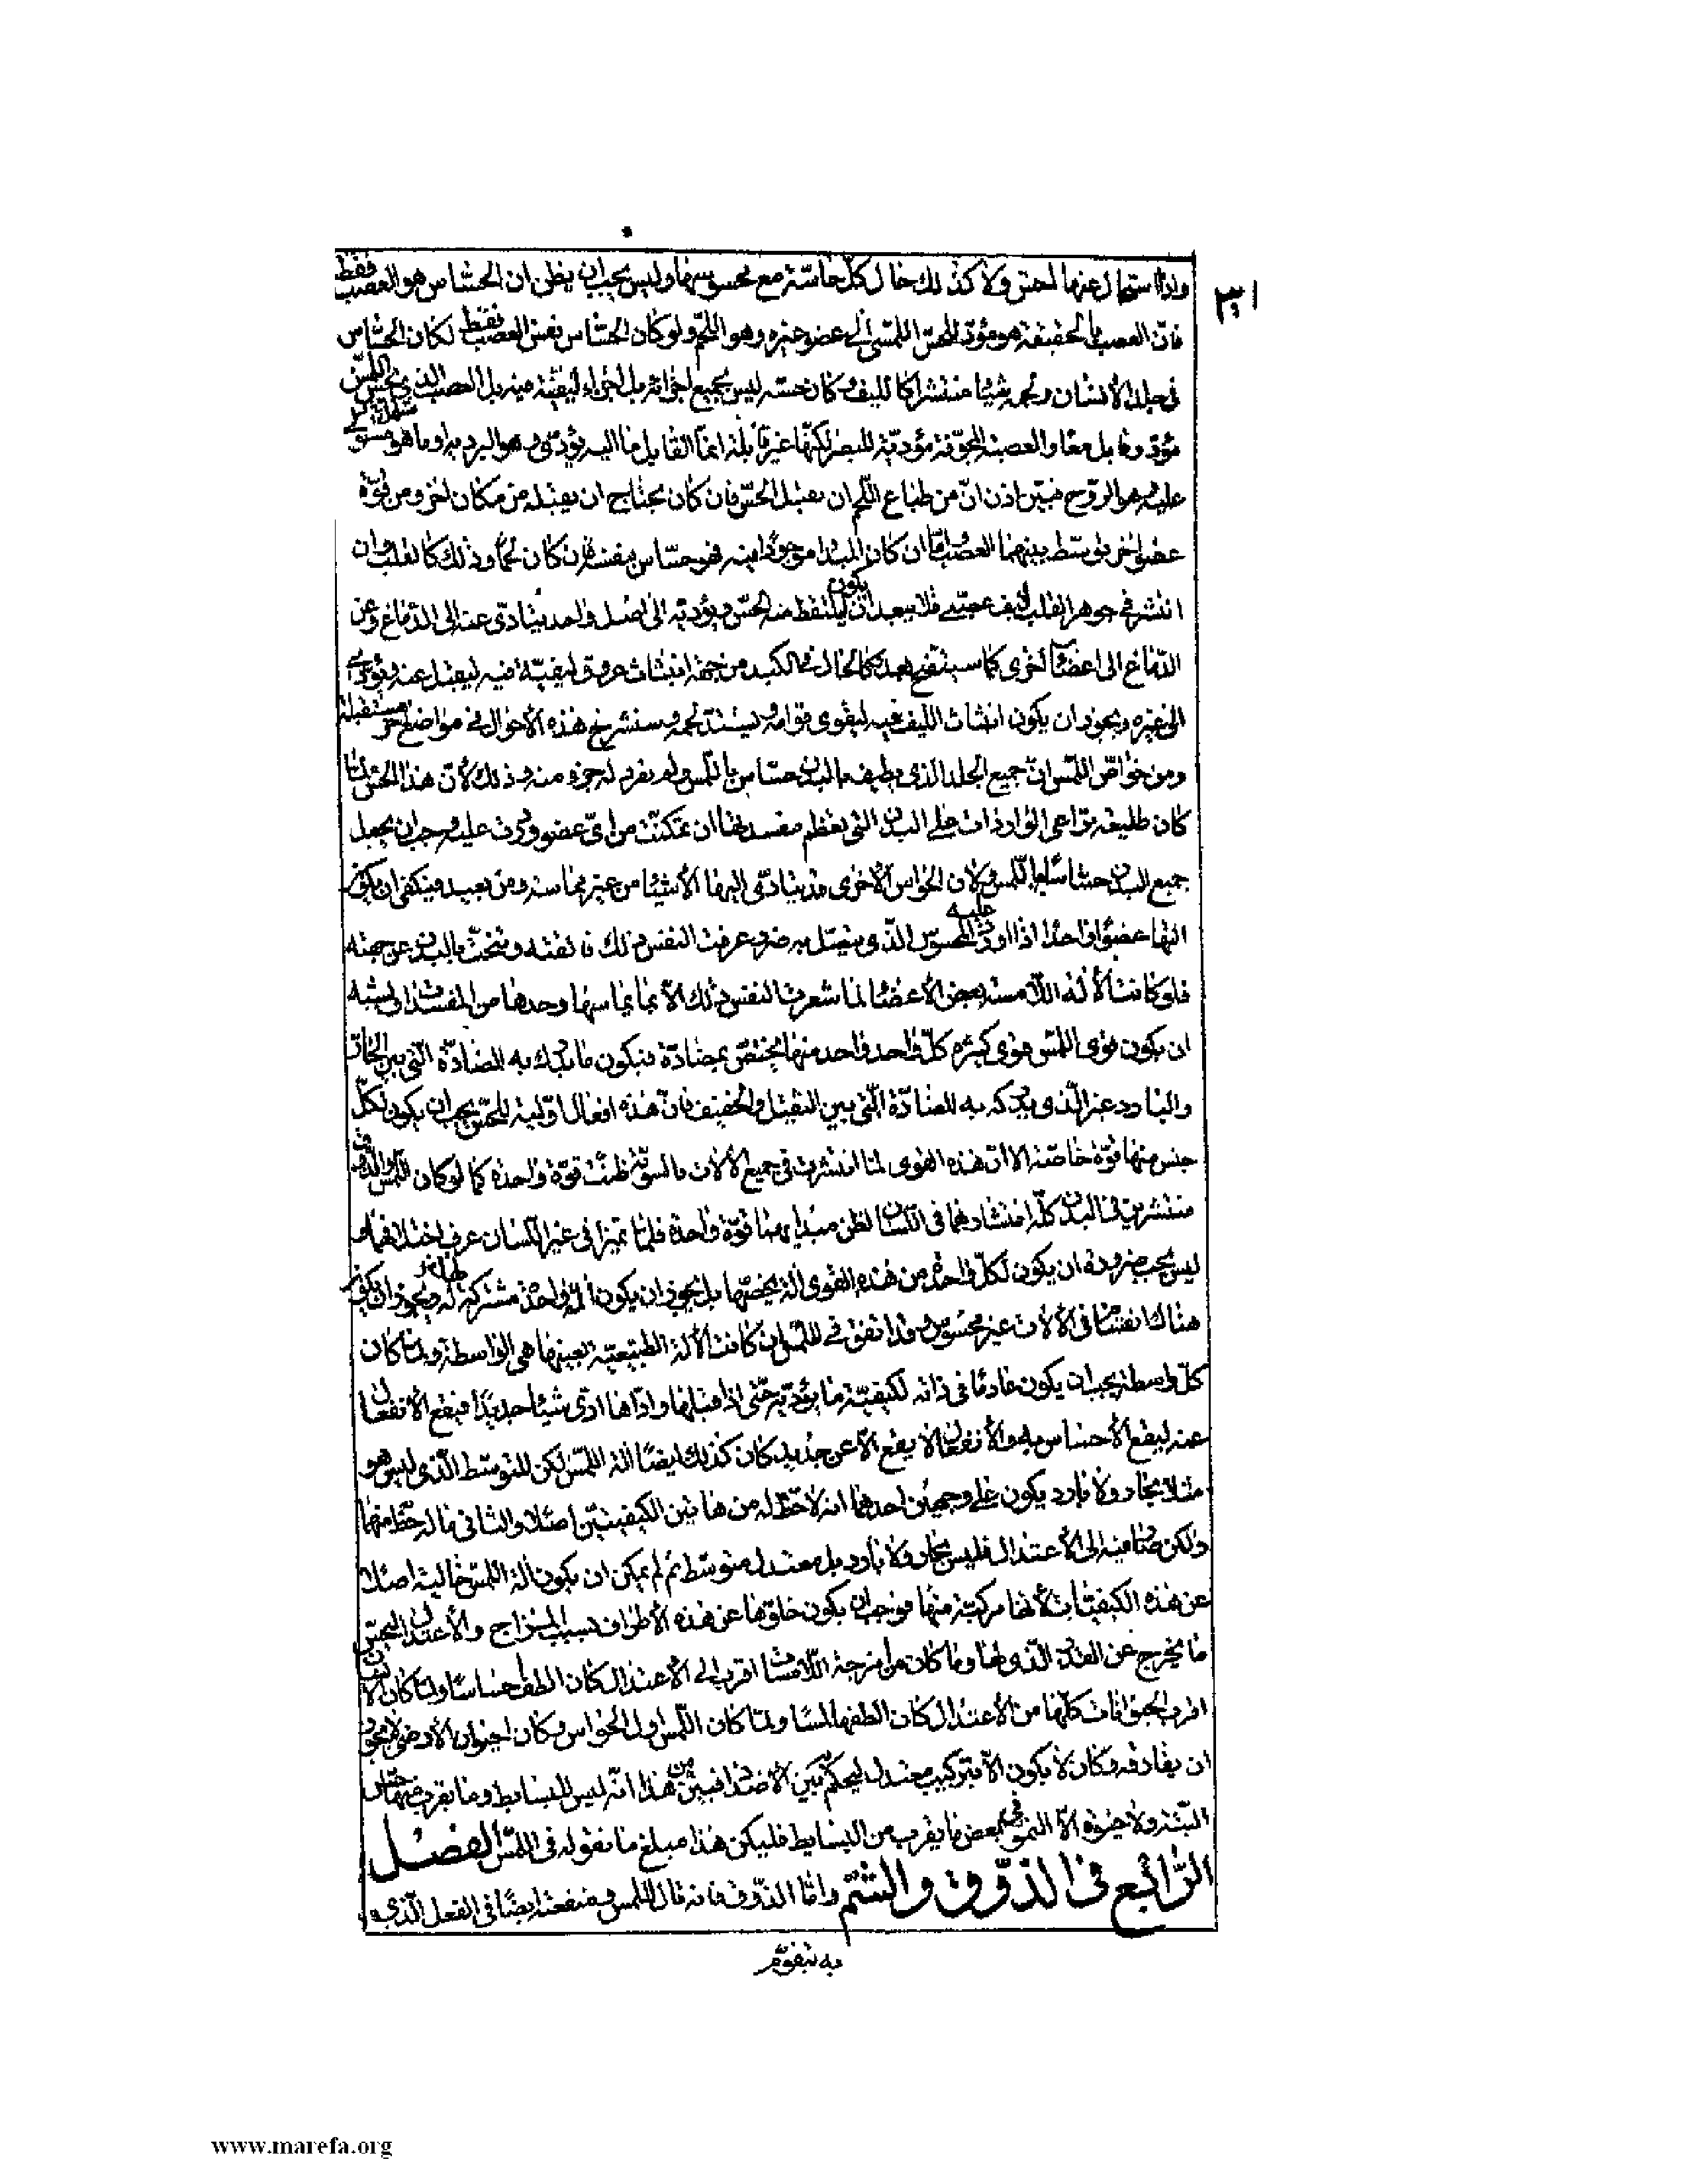 ٣١
واذا استحال عنها لم يحس ولا كذلك حال كل حاسة مع محسوسها وليس يجب ان يظن ان الحساس هو العصب فقط
فان العصب بالحقيقة هو مؤد للحس اللمسي الى عضو غيره وهو اللحم ولو كان الحساس نفس العصب فقط لكان الحساس
في جلد الانسان ولحمه شيئا منتشرا كالليف وكان حسه ليس لجميع اجزائه بل اجزاء ليفية فيه بل العصب الذي يحس اللمس
مؤد وقابل معا والعصبة المجوفة مؤدية للبصر لكنها غير قابلة انما القابل ما اليه يؤدي وهو البردية او ما هو مستول
عليه وهو الروح فبين اذن ان من طباع اللحم ان يقبل الحس فان كان يحتاج ان يقبله من مكان اخر ومن قوة
عضو اخر يتوسط بينهما العصب واما ان كان المبدا موجودا فيه فهو حساس بنفسه وان كان لحما وذلك كالقلب وان
انتشر في جوهر القلب ليف عصبي فلا يبعد ان يكون ليلتقط منه الحس ويؤديه الى اصل واحد يتادى عنه الى الدماغ وعن
الدماغ الى اعضاء اخرى كما سيتضح بعد كالحال في الكبد من جهة انبثاث عروق ليفية فيه ليقبل عنه ويؤدي
الى غيره ويجوز ان يكون انبثاث الليف فيه ليقوى قوامه ويشتد لحمه وسنشرح هذه الاحوال في مواضع اخر مستقبلة
ومن خواص اللمس ان جميع الجلد الذي يطيف بالبدن حساس باللمس ولم يفرد له جزء منه وذلك لان هذا الحس لما
كان طليعة يراعي الواردات على البدن التي يعظم مفسدتها ان تمكنت من اي عضو وردت عليه وجب ان يجعل
جميع البدن حساسا باللمس ولان الحواس الاخرى قد يتادى اليها الاشياء من غير مماسة ومن بعيد فيكفي ان يكون
التها عضوا واحدا اذا اورد عليه المحسوس الذي يتصل به ضرر عرفت النفس ذلك فاتقته وتنحت بالبدن عن جهته
فلو كانت الالة اللامسة بعض الاعضاء لما شعرت النفس ذلك الا بما يماسها وحدها من المفسدات ويشبه
ان يكون قوى اللمس قوى كثيرة كل واحد واحد منها يختص بمضادة فيكون ما يدرك به المضادة التي بين الحار
والبارد غير الذي يدرك به المضادة التي بين الثقيل والخفيف فان هذه افعال اولية للحس يجب ان يكون لكل
جنس منها قوة خاصة الا ان هذه القوى لما انتشرت في جميع الالات بالسوية ظنت قوة واحدة كما لو كان اللمس والذوق
منتشرين في البدن كله انتشارهما في اللسان لظن مبداهما قوة واحدة فلما تميزا في غير اللسان عرف اختلافهما و
ليس يجب ضرورة ان يكون لكل واحدة من هذه القوى الة يخصها بل يجوز ان يكون الة واحدة مشتركة لها ويجوز ان يكون
هناك انقسام في الالات غير محسوس وقد اتفق في اللمس ان كانت الالة الطبيعية بعينها هي الواسطة ولما كان
كل واسطة يجب ان يكون عادما في ذاته لكيفية ما يؤديه حتى اذا قبلها واداها ادى شيئا جديدا فيقع الانفعال
عنه ليقع الاحساس به والانفعال لا يقع الا عن جديد كان كذلك ايضا الة اللمس لكن المتوسط الذي ليس هو
مثلا بحار ولا بارد يكون على وجهين احدهما انه لا حظ له من هاتين الكيفيتين اصلا والثاني ما له حظ منهما
ولكن صار فيه الى الاعتدال فليس بحار ولا بارد بل معتدل متوسط ثم لم يمكن ان يكون الة اللمس خالية اصلا
عن هذه الكيفيات لانها مركبة منها فوجب ان يكون خلوها عن هذه الاطراف بسبب المزاج والاعتدال ليحس
ما يخرج عن القدر الذي لها وما كان من امزجة اللامسات اقرب الى الاعتدال كان الطف احساسا ولما كان الانسان
اقرب الحيوانات كلها من الاعتدال كان الطفها لمسا ولما كان اللمس اول الحواس وكان الحيوان الارضي لا يجوز
ان يفارقه وكان لا يكون الا بتركيب معتدل ليحكم به بين الاضداد فبين من هذا انه ليس للبسايط وما يقرب منها حس
البتة ولا حيوة الا النمو في بعض ما يقرب من البسايط فليكن هذا مبلغ ما نقوله في اللمس الفصل
الرابع في الذوق والشم واما الذوق فانه تال للمس ومنفعته ايضا في الفعل الذي
به يتقوم
www.marefa.org